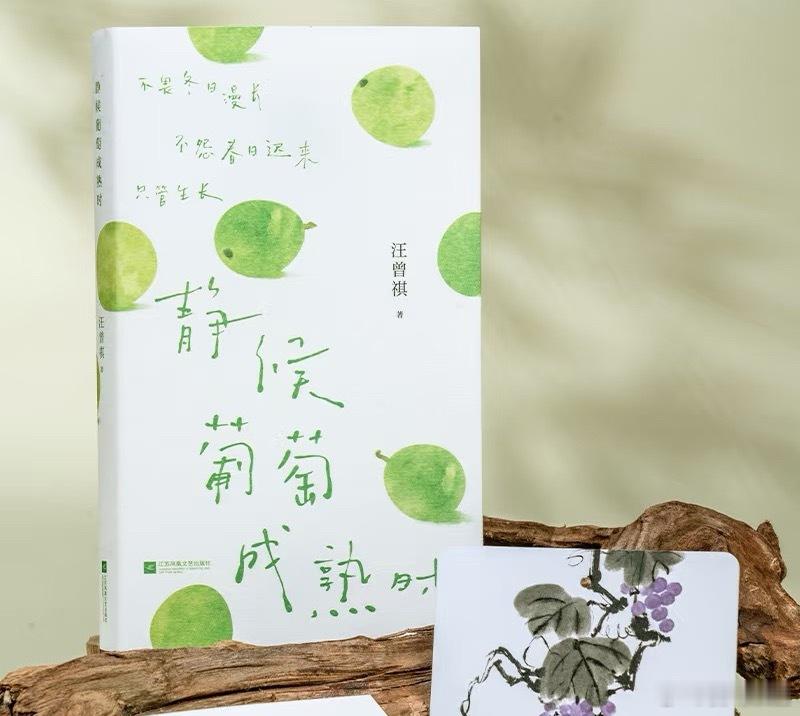 不畏冬日漫长
不怨春日迟来
只管生长
汪曾祺
著
静候
葡萄
成熟时
江苏凤凰文艺出版社
静候葡萄成熟时
汪曾祺 著